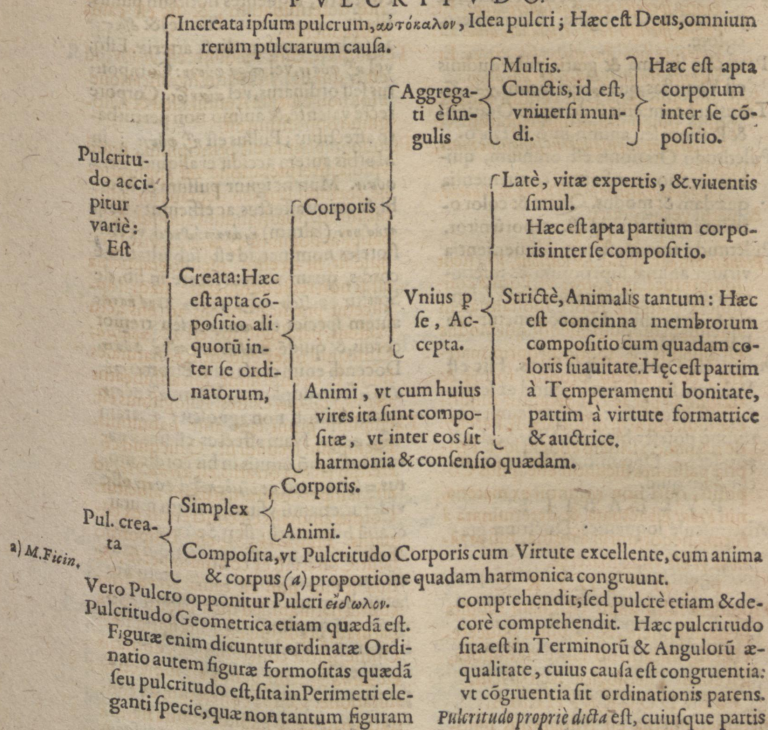 PVLCRITVDO.
Increata ipsum pulcrum, αὐτόκαλον, Idea pulcri; Hæc est Deus, omnium
rerum pulcrarum causa.
Pulcritu-
do acci-
pitur
variè:
Est
Creata: Hæc
est apta cō-
positio ali-
quorū in-
ter se ordi-
natorum,
Corporis
Aggrega-
ti è sin-
gulis
Multis.
Cunctis, id est,
vniuersi mun-
di.
Hæc est apta
corporum
inter se cō-
positio.
Vnius p
se, Ac-
cepta.
Latè, vitæ expertis, & viuentis
simul.
Hæc est apta partium corpo-
ris inter se compositio.
Strictè, Animalis tantum: Hæc
est concinna membrorum
compositio cum quadam co-
loris suauitate. Hęc est partim
à Temperamenti bonitate,
partim à virtute formatrice
& auctrice.
Animi, vt cum huius
vires ita sunt compo-
sitæ, vt inter eos sit
harmonia & consensio quædam.
Pul. crea-
ta
Simplex
Corporis.
Animi.
Composita, vt Pulcritudo Corporis cum Virtute excellente, cum anima
& corpus (a) proportione quadam harmonica congruunt.
a) M. Ficin.
Vero Pulcro opponitur Pulcri εἴδωλον.
Pulcritudo Geometrica etiam quædā est.
Figuræ enim dicuntur ordinatæ. Ordi-
natio autem figuræ formositas quædā
seu pulcritudo est, sita in Perimetri ele-
ganti specie, quæ non tantum figuram
comprehendit, sed pulcrè etiam & de-
corè comprehendit. Hæc pulcritudo
sita est in Terminorū & Angulorū æ-
qualitate, cuius causa est congruentia:
vt cōgruentia sit ordinationis parens.
Pulcritudo propriè dicta est, cuiusque partis